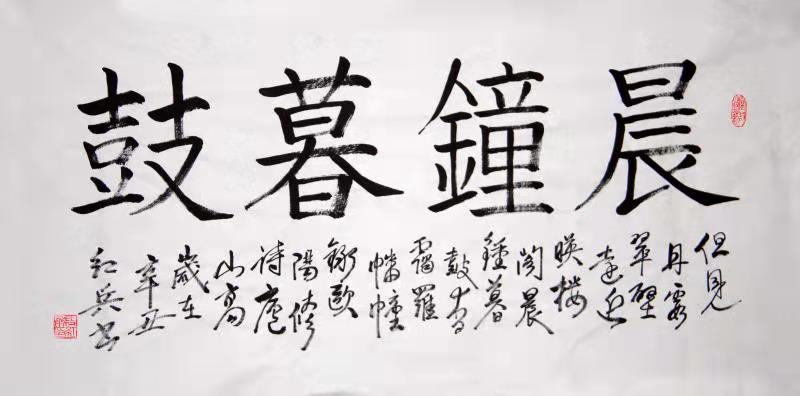 晨鐘暮鼓
但見
丹霞
翠壁
遠近
暎楼
閣晨
鍾暮
鼓杳
靄羅
幡幢
錄歐
陽修
詩廬
山高
歲在
辛丑
紅兵书